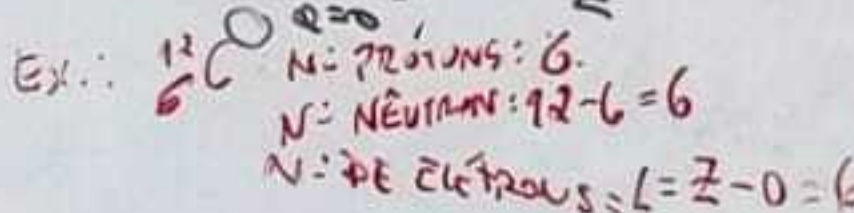 Q=0
Ex.: 12 6 C 0 Nº PRÓTONS: 6.
Nº NÊUTRON: 12-6=6
Nº DE ELÉTRONS: L=Z-0=6